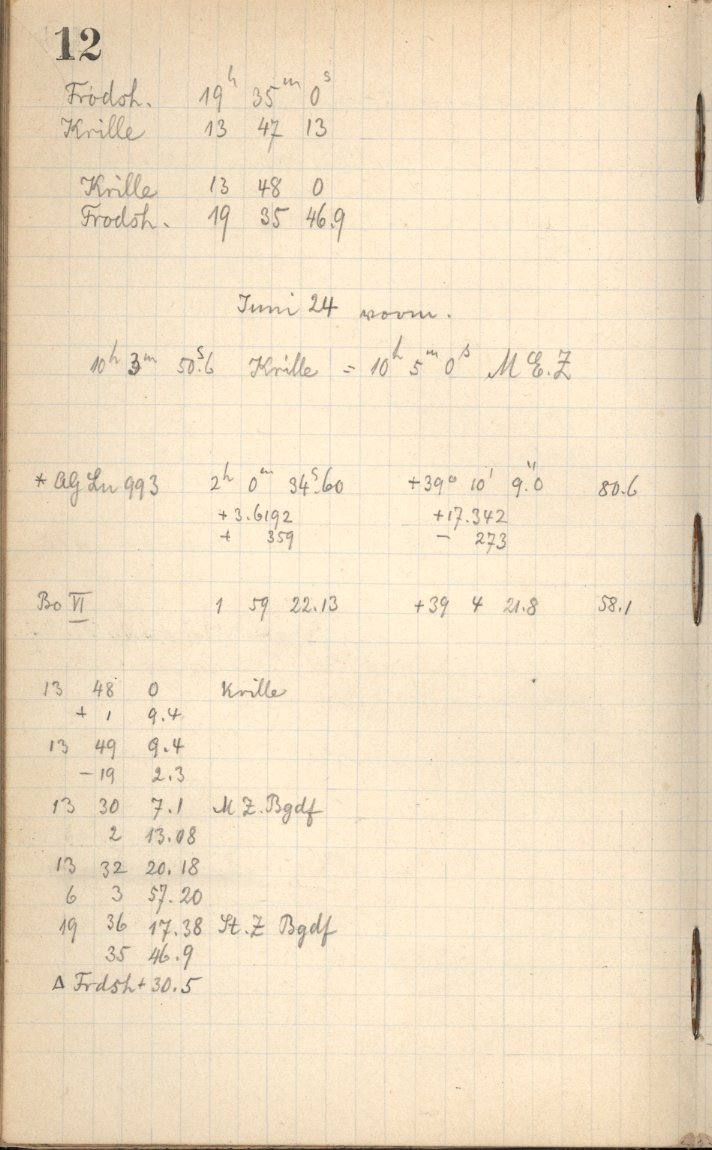 12
Frodsh. 19h 35m 0s
Krille 13 47 13
Krille 13 48 0
Frodsh. 19 35 46.9
Juni 24 vorm.
10h 3m 50s.6 Krille = 10h 5m 0s M.E.Z
* AG Lu 993 2h 0m 34s.60 +39° 10' 9".0 80.6
+3.6192 +17.342
+ 359 - 273
Bo VI 1 59 22.13 +39 4 21.8 58.1
13 48 0 Krille
+ 1 9.4
13 49 9.4
-19 2.3
13 30 7.1 M Z. Bgdf
2 13.08
13 32 20.18
6 3 57.20
19 36 17.38 St. Z Bgdf
35 46.9
Δ Frdsh + 30.5